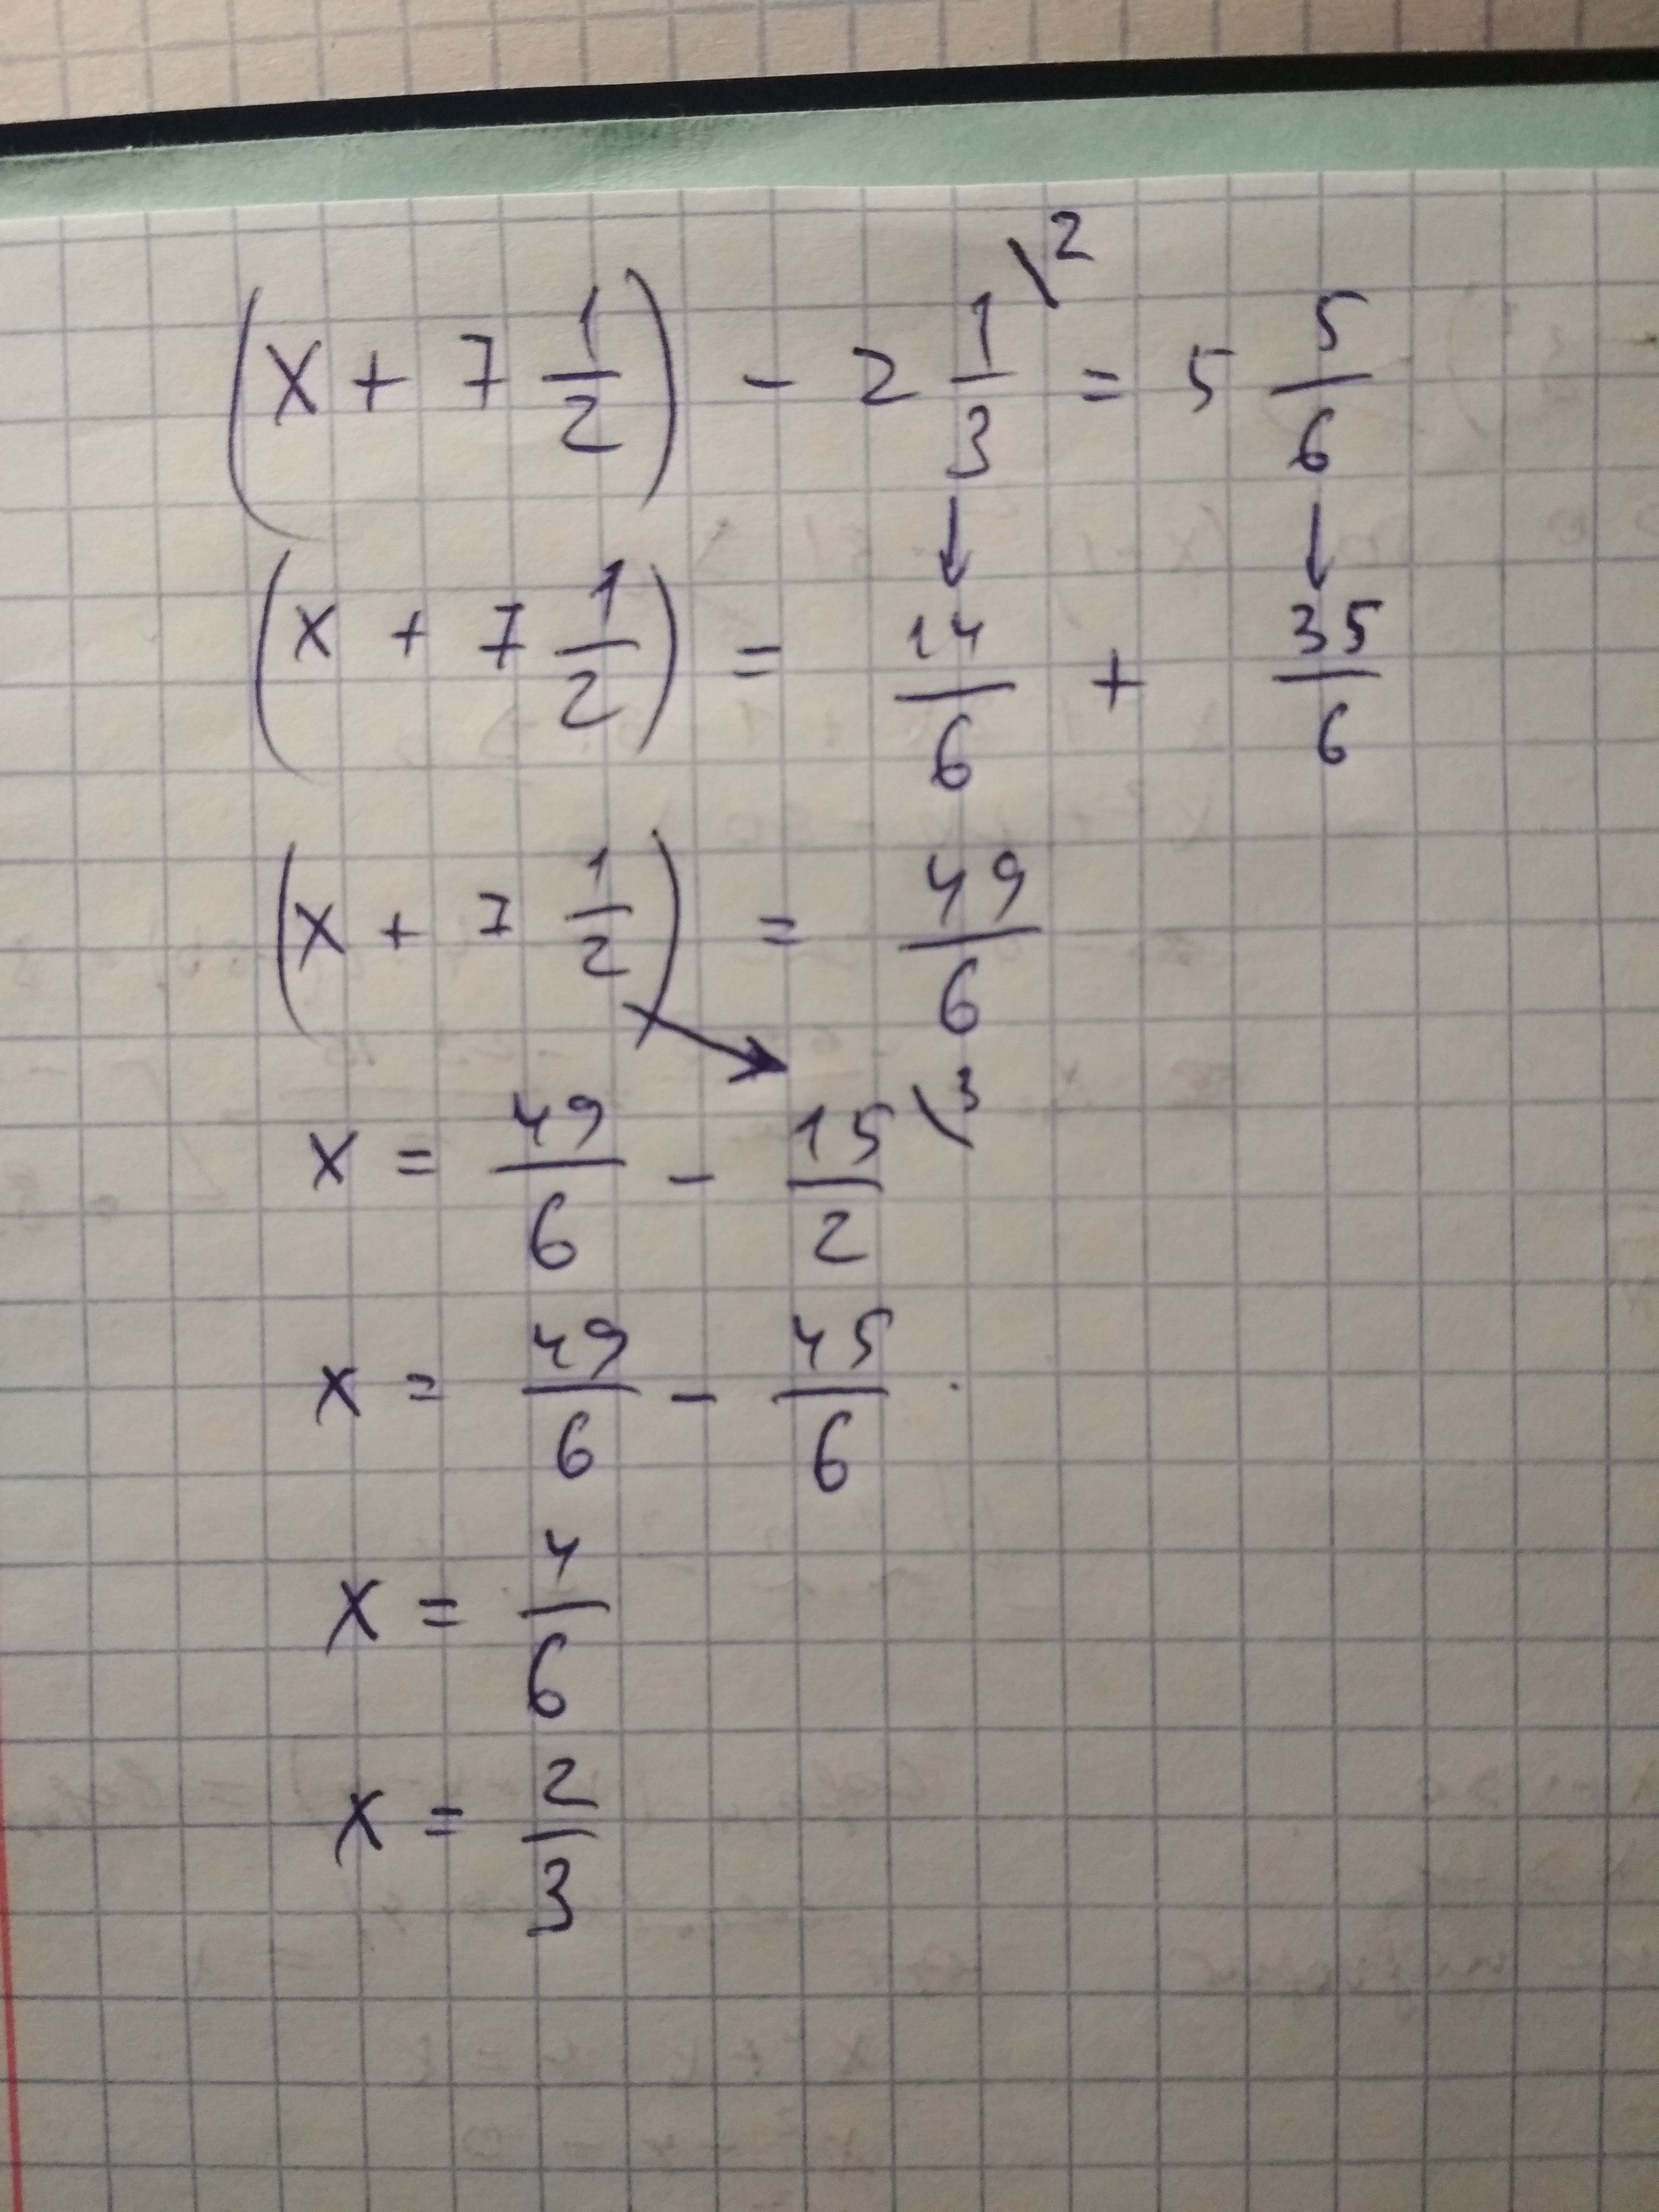 (x + 7 1/2) - 2 1/3 \2 = 5 5/6
(x + 7 1/2) = 14/6 + 35/6
(x + 7 1/2) = 49/6
x = 49/6 - 15/2 \3
x = 49/6 - 45/6
x = 4/6
x = 2/3